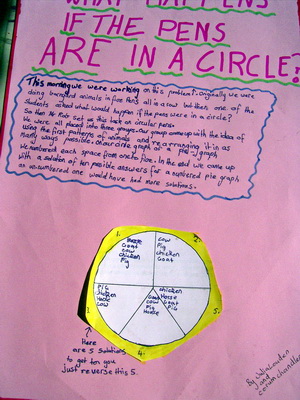 WHAT HAPPENS
IF THE PENS
ARE IN A CIRCLE?
This morning we were working on this problem. Originally we were
doing farmyard animals in five pens all in a row but then one of the
students asked what would happen if the pens were in a circle?
So then Mr set us this task on circular pens.
We were all placed into three groups. Our group came up with the idea of
using the first patterns of animals and rearranging it in as
many ways possible. Our circle graph or a pie-graph
We numbered each space from one to five. In the end we came up
with a solution of ten possible answers for a numbered pie graph
as un-numbered one would have had more solutions.
1.
Horse
Goat
Cow
Chicken
Pig
2.
Cow
Pig
Chicken
Goat
3.
Pig
Chicken
Horse
Cow
4.
Goat
Cow
Pig
Horse
5.
Chicken
Horse
Goat
Pig
Here
are 5 solutions
to get ten you
just reverse this 5.
By Julia
and
Chandler